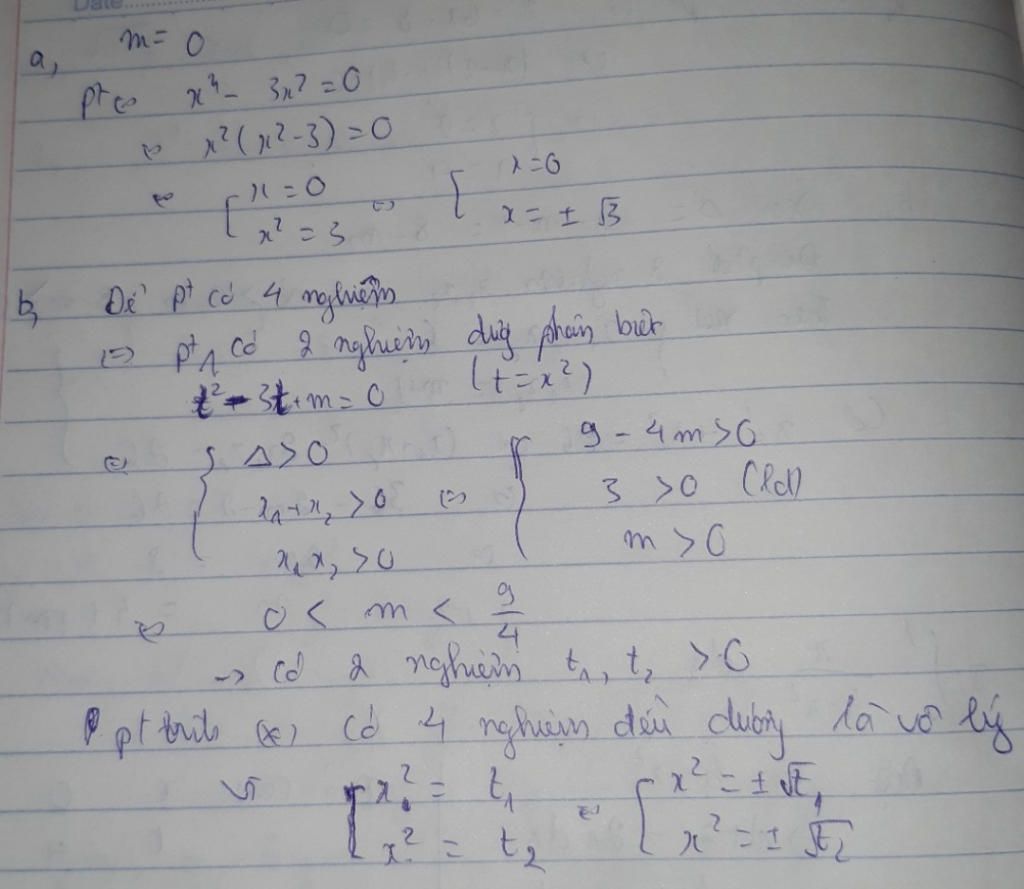 Date
a, m = 0
pt ⇔ x⁴ - 3x² = 0
⇔ x²(x² - 3) = 0
⇔ [ x = 0 ⇔ [ x = 0
x² = 3 x = ± √3
b, Để pt có 4 nghiệm
⇔ pt1 có 2 nghiệm dương phân biệt
t² - 3t + m = 0 (t = x²)
⇔ { Δ > 0 ⇔ { 9 - 4m > 0
x₁ + x₂ > 0 3 > 0 (lđ)
x₁ x₂ > 0 m > 0
⇔ 0 < m < 9/4
→ Có 2 nghiệm t₁, t₂ > 0
pt (x) có 4 nghiệm đều dương là vô lý
Vì [ x² = t₁ ⇔ [ x² = ± √t₁
x² = t₂ x² = ± √t₂